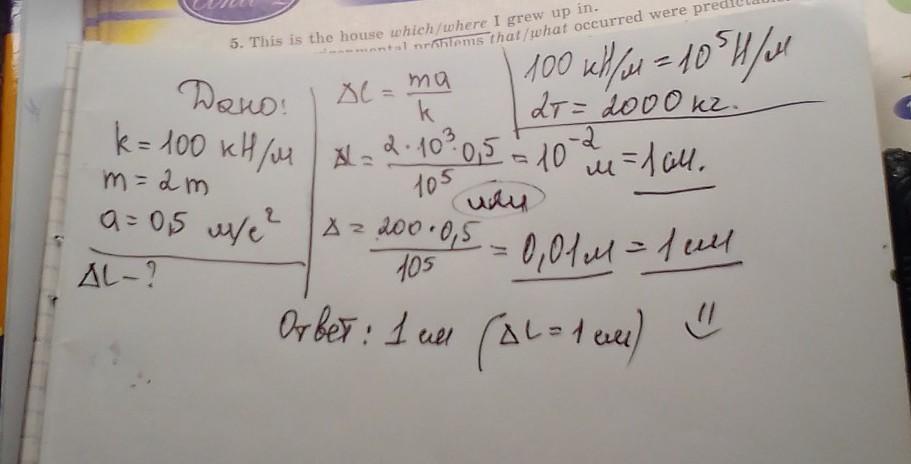 5. This is the house which/where I grew up in.
problems that/what occurred were
Дано:
k = 100 кН/м
m = 2 т
a = 0,5 м/с²
ΔL - ?
ΔL = ma/k
100 кН/м = 10⁵ Н/м
2т = 2000 кг.
Δl = 2·10³·0,5/10⁵ = 10⁻² м = 1 см.
или
Δ = 200·0,5/10⁵ = 0,01 м = 1 см
Ответ: 1 см (ΔL = 1 см)